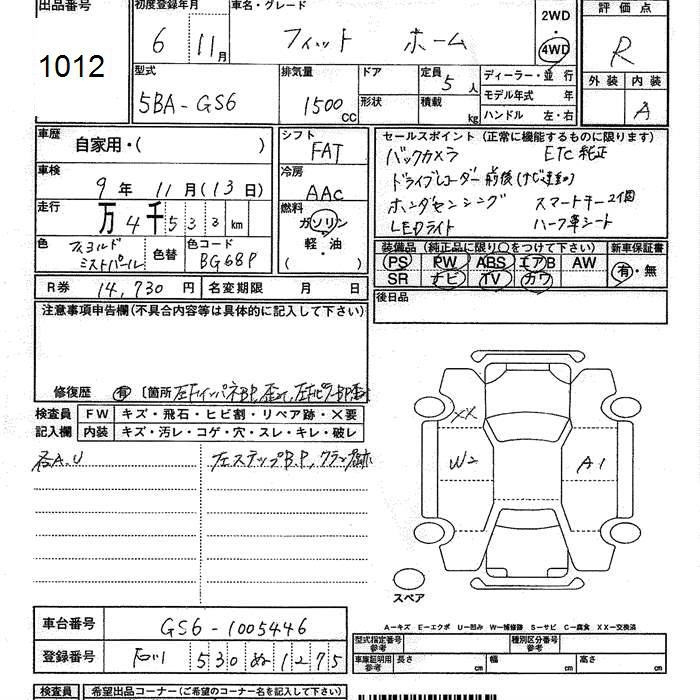 出品番号 1012
初度登録年月 6 11月
車名・グレード フィット ホーム
2WD 4WD
評価点 R
外装 内装 A
型式 5BA-GS6
排気量 1500 CC
ドア 形状
定員 5人
積載 kg
ディーラー・並行
モデル年式 年
ハンドル 左・右
車歴 自家用・( )
車検 9年 11月(13日)
走行 万4千533km
色 フィヨルドミストパール 色替
色コード BG68P
シフト FAT
冷房 AAC
燃料 ガソリン・軽・油 ( )
セールスポイント (正常に機能するものに限ります)
バックカメラ ETC純正
ドライブレコーダー前後(ナビ連動)
ホンダセンシング スマートキー2個
LEDライト ハーフ革シート
装備品 (純正品に限り○をつけて下さい) 新車保証書
PS PW ABS エアB AW 有・無
SR ナビ TV カワ
後日品
R券 14,730円 名変期限 月 日
注意事項申告欄(不具合内容等は具体的に記入して下さい)
修復歴 有 〔箇所
検査員記入欄
FW キズ・飛石・ヒビ割・リペア跡・×要
内装 キズ・汚レ・コゲ・穴・スレ・キレ・破レ
各A.U 左ステップB.P,
XX
W2 A1
スペア
A-キズ E-エクボ U-凹み W-補修跡 S-サビ C-腐食 XX-交換済
車台番号 GS6-1005446
登録番号 石川 530 ぬ 1275
型式指定番号 参考 種別区分番号 参考
車庫証明用 参考 長さ cm 幅 cm 高さ cm
検査員 希望出品コーナー(ご希望のコーナー名を記入して下さい)